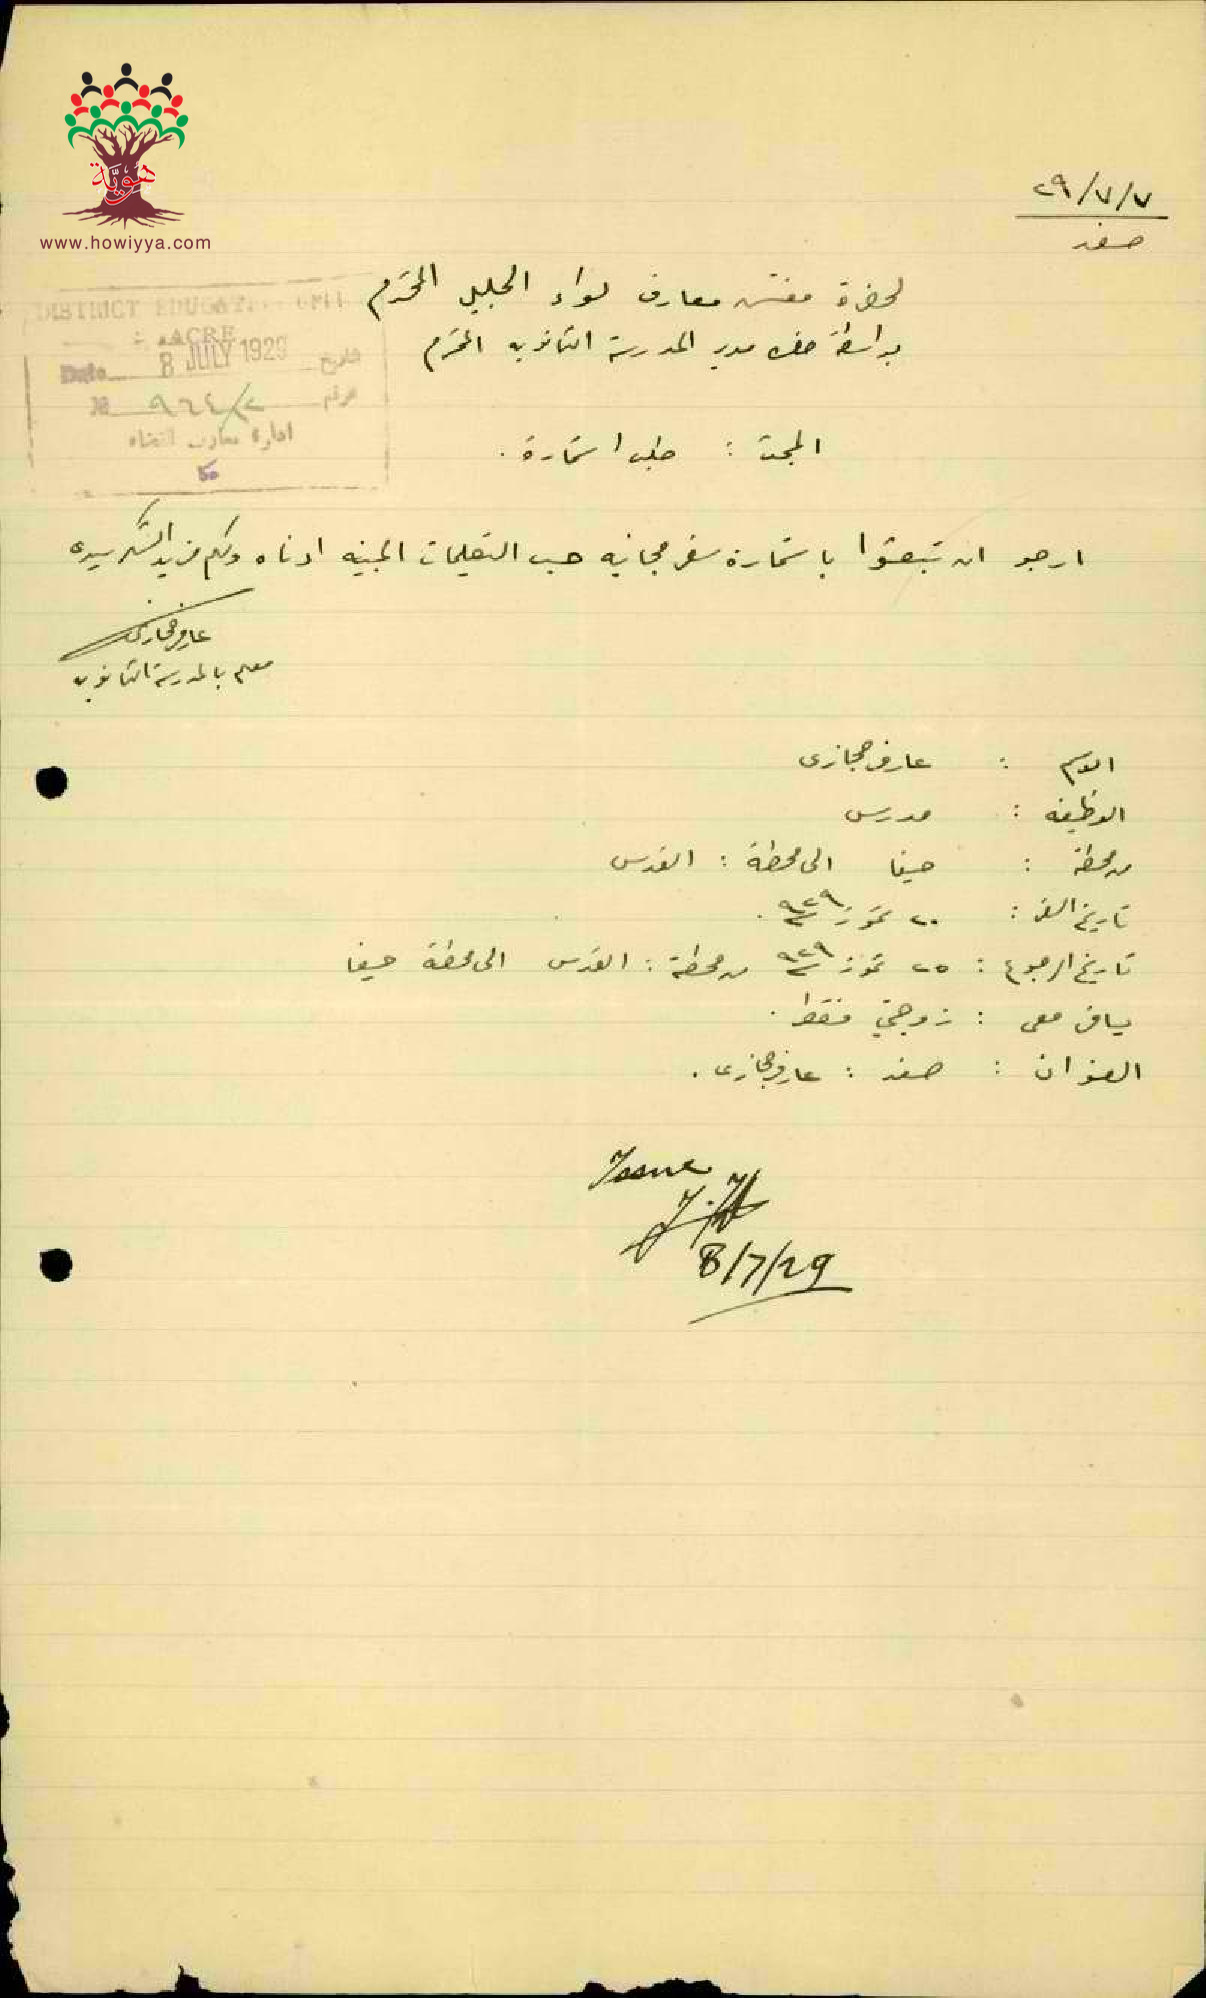 هوية
www.howiyya.com
٢٩/٧/٧
صفد
لحضرة مفتش معارف لواء الجليل المحترم
بواسطة حضرة مدير المدرسة الثانويه المحترم
DISTRICT EDUCAT
ACRE
Date 8 JULY 1929 تاريخ
№ ٩٦٤/٢ نمرقم
ادارة معارف
المبحث : طلب استمارة .
ارجو ان تبعثوا باستمارة سفر مجانيه حسب التعليمات المبينه ادناه ولكم مزيد الشكر سيدي
عارف حجازي
معلم بالمدرسة الثانويه
الاسم : عارف حجازي
الوظيفه : مدرس
من محطة : حيفا الى محطة : القدس
تاريخ السفر : ٢٠ تموز سنة ٩٢٩ .
تاريخ الرجوع : ٢٥ تموز سنة ٩٢٩ من محطة : القدس الى محطة حيفا
يسافر معي : زوجتي فقط .
العنوان : صفد : عارف حجازي .
Issue
8/7/29